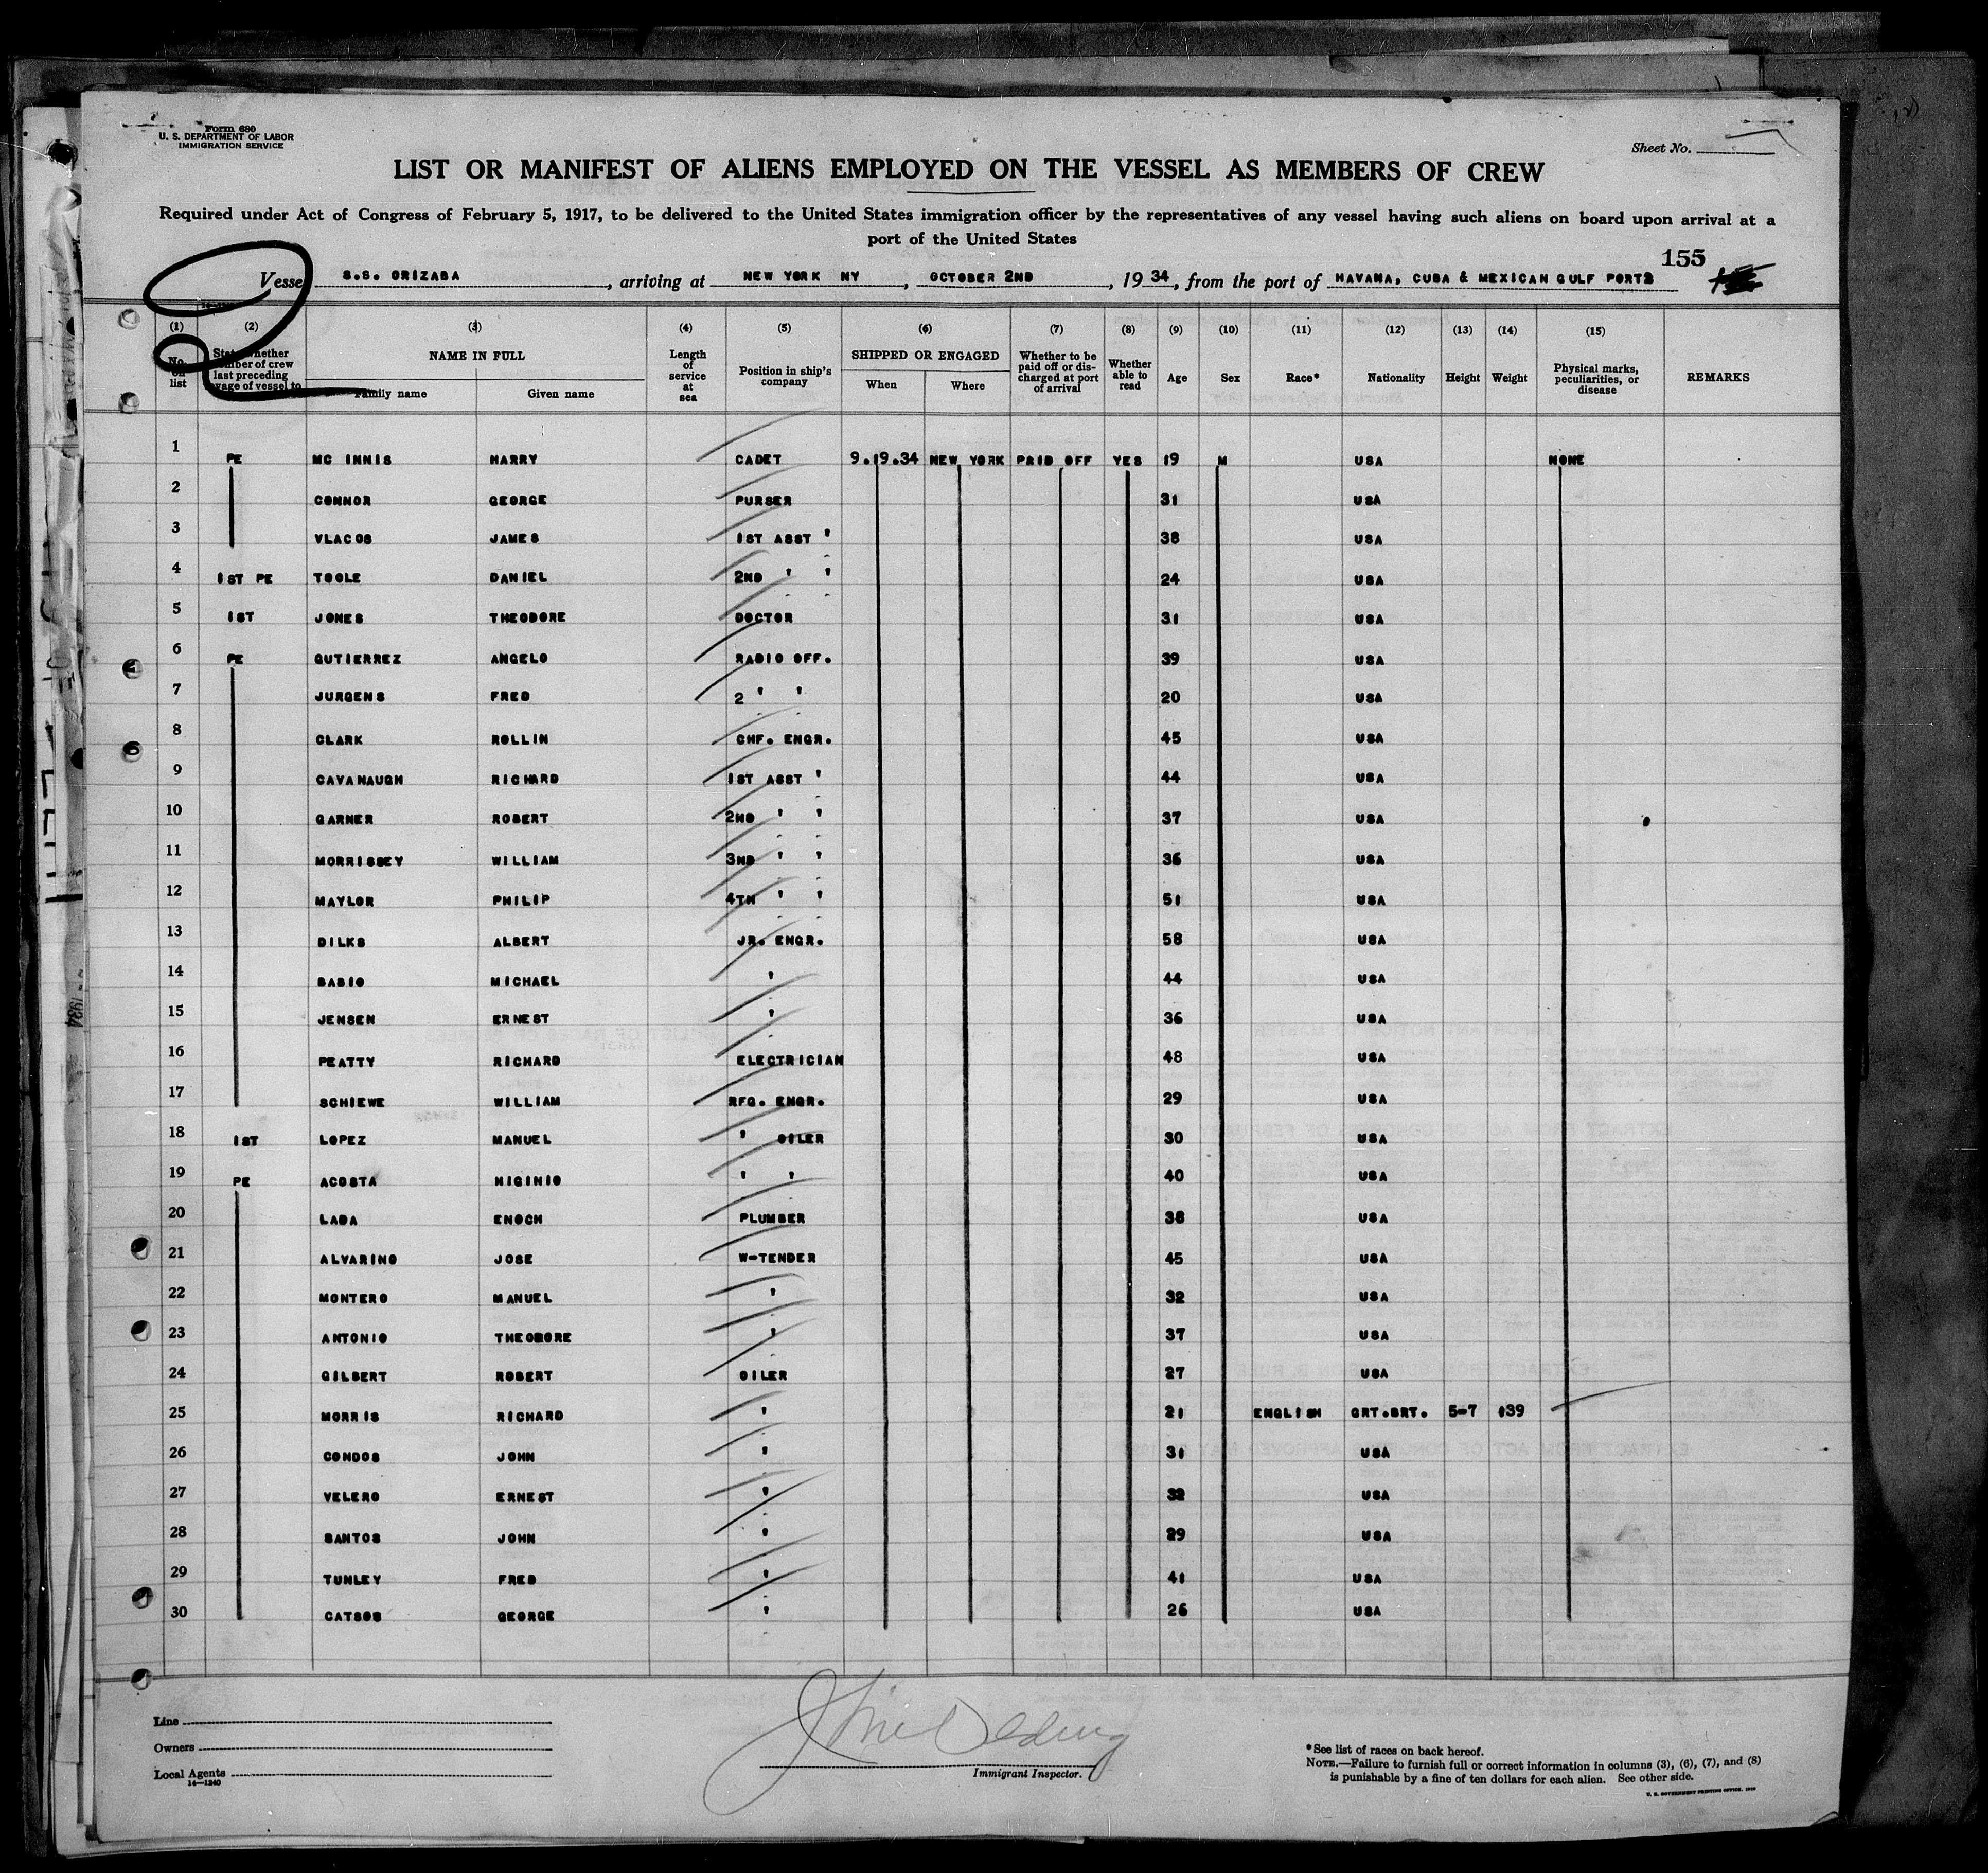 Form 680
U. S. DEPARTMENT OF LABOR
IMMIGRATION SERVICE
Sheet No.
LIST OR MANIFEST OF ALIENS EMPLOYED ON THE VESSEL AS MEMBERS OF CREW
Required under Act of Congress of February 5, 1917, to be delivered to the United States immigration officer by the representatives of any vessel having such aliens on board upon arrival at a
port of the United States
155
Vesse S.S. ORIZABA, arriving at NEW YORK NY, OCTOBER 2ND, 1934, from the port of HAVANA, CUBA & MEXICAN GULF PORTS
(1) (2) (3) (4) (5) (6) (7) (8) (9) (10) (11) (12) (13) (14) (15)
No. on list
State whether member of crew last preceding voyage of vessel to
NAME IN FULL
Family name Given name
Length of service at sea
Position in ship's company
SHIPPED OR ENGAGED
When Where
Whether to be paid off or discharged at port of arrival
Whether able to read
Age Sex Race* Nationality Height Weight
Physical marks, peculiarities, or disease
REMARKS
1 PE MC INNIS HARRY CADET 9.19.34 NEW YORK PAID OFF YES 19 M USA NONE
2 CONNOR GEORGE PURSER 31 USA
3 VLACOS JAMES 1ST ASST ' 38 USA
4 1ST PE TOOLE DANIEL 2ND ' ' 24 USA
5 1ST JONES THEODORE DOCTOR 31 USA
6 PE GUTIERREZ ANGELO RADIO OFF. 39 USA
7 JURGENS FRED 2 ' ' 20 USA
8 CLARK ROLLIN CHF. ENGR. 45 USA
9 CAVANAUGH RICHARD 1ST ASST ' 44 USA
10 GARNER ROBERT 2ND ' ' 37 USA
11 MORRISSEY WILLIAM 3ND ' ' 36 USA
12 MAYLOR PHILIP 4TH ' ' 51 USA
13 DILKS ALBERT JR. ENGR. 58 USA
14 BABIO MICHAEL ' 44 USA
15 JENSEN ERNEST ' 36 USA
16 PEATTY RICHARD ELECTRICIAN 48 USA
17 SCHIEWE WILLIAM RFG. ENGR. 29 USA
18 1ST LOPEZ MANUEL ' OILER 30 USA
19 PE ACOSTA HIGINIO ' ' 40 USA
20 LADA ENOCH PLUMBER 38 USA
21 ALVARINO JOSE W-TENDER 45 USA
22 MONTERO MANUEL ' 32 USA
23 ANTONIO THEODORE ' 37 USA
24 GILBERT ROBERT OILER 27 USA
25 MORRIS RICHARD ' 21 ENGLISH GRT.BRT. 5-7 139
26 CONDOS JOHN ' 31 USA
27 VELERO ERNEST ' 32 USA
28 SANTOS JOHN ' 29 USA
29 TUNLEY FRED ' 41 USA
30 CATSOS GEORGE ' 26 USA
Line
Owners
Local Agents
14—1240
Immigrant Inspector.
*See list of races on back hereof.
NOTE.—Failure to furnish full or correct information in columns (3), (6), (7), and (8)
is punishable by a fine of ten dollars for each alien. See other side.
U. S. GOVERNMENT PRINTING OFFICE